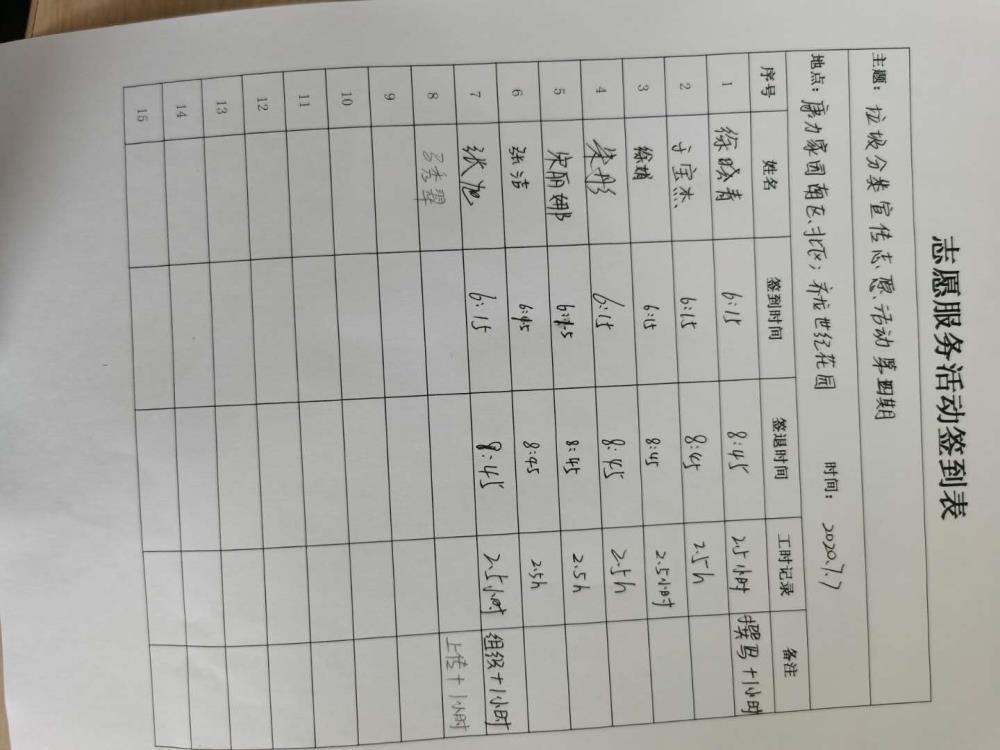 志愿服务活动签到表
主题：垃圾分类宣传志愿活动第四期
地点：康力家园南区、北区；齐龙世纪花园 时间：2020.7.7
序号 姓名 签到时间 签退时间 工时记录 备注
1 徐晓青 6:15 8:45 2.5小时 撰写+1小时
2 于宝杰 6:15 8:45 2.5h
3 徐娟 6:15 8:45 2.5小时
4 朱彤 6:15 8:45 2.5h
5 宋丽娜 6:15 8:45 2.5h
6 张洁 6:15 8:45 2.5h
7 张旭 6:15 8:45 2.5小时 组织+1小时
8 吕秀翠 上传+1小时
9
10
11
12
13
14
15